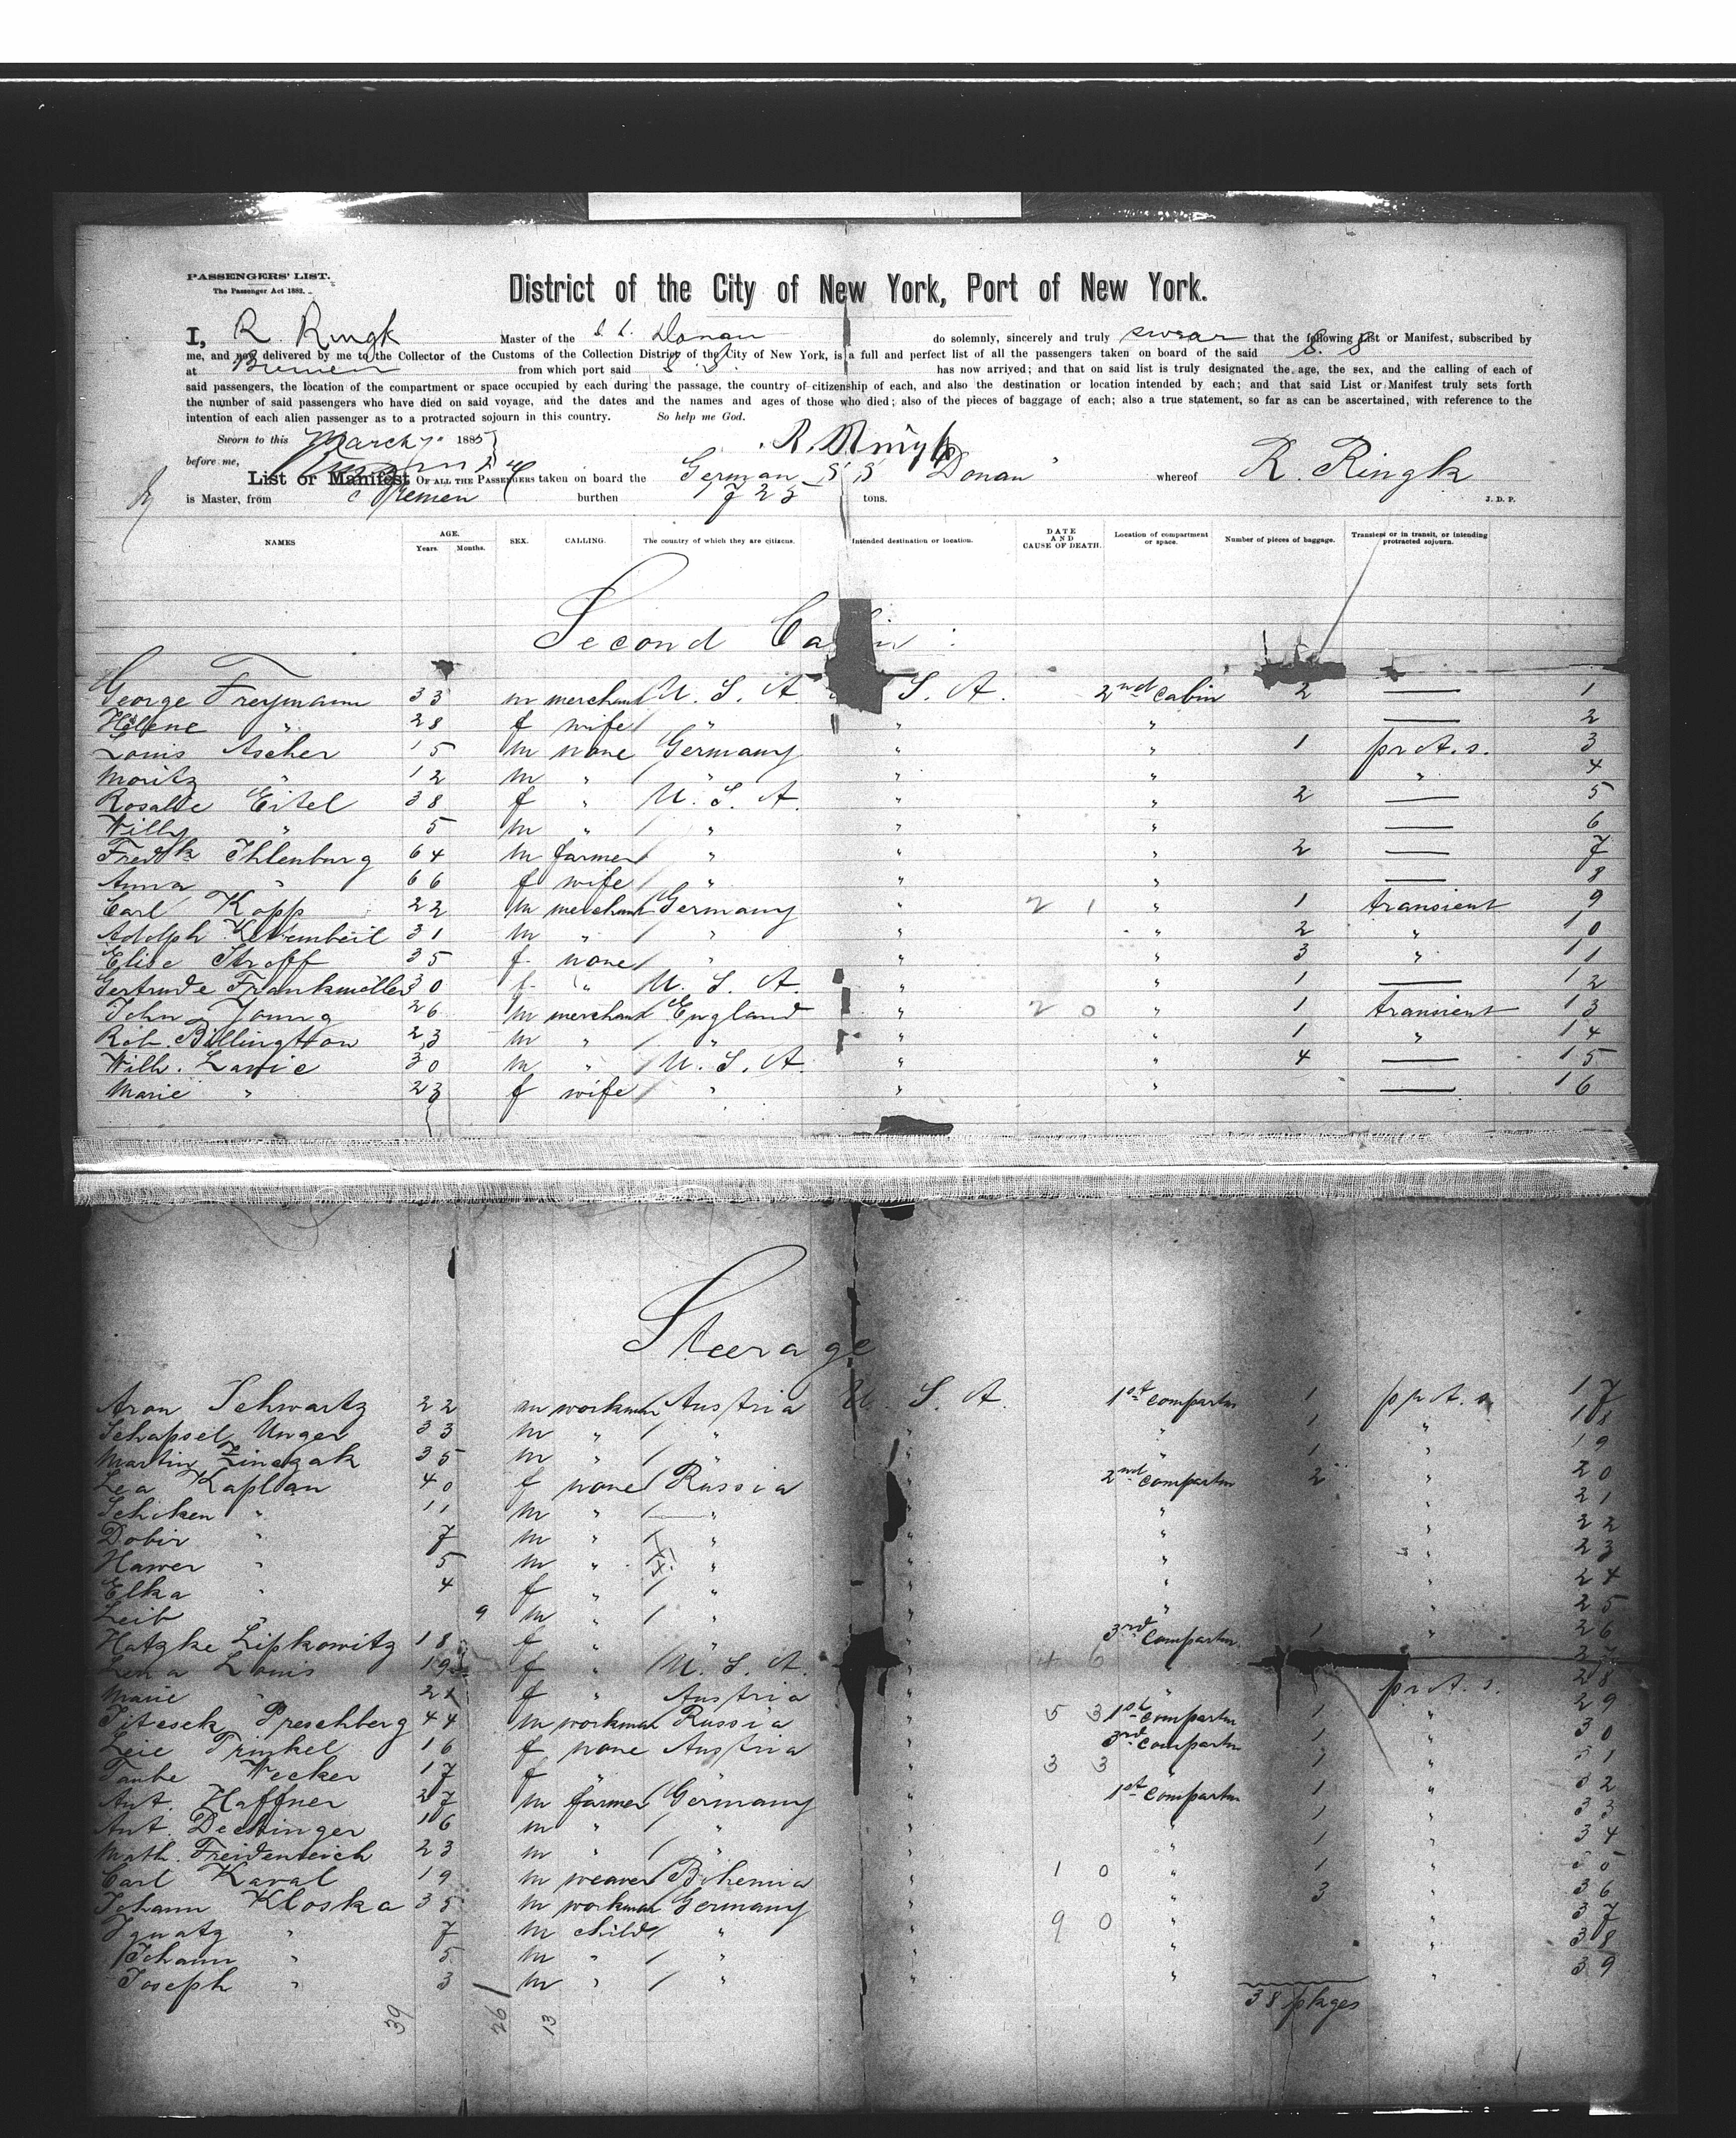 PASSENGERS' LIST.
The Passenger Act 1882.
District of the City of New York, Port of New York.
I, R. Ringk Master of the S. S. Donau do solemnly, sincerely and truly swear that the following List or Manifest, subscribed by
me, and now delivered by me to the Collector of the Customs of the Collection District of the City of New York, is a full and perfect list of all the passengers taken on board of the said S. S.
at Bremen from which port said S. S. has now arrived; and that on said list is truly designated the age, the sex, and the calling of each of
said passengers, the location of the compartment or space occupied by each during the passage, the country of citizenship of each, and also the destination or location intended by each; and that said List or Manifest truly sets forth
the number of said passengers who have died on said voyage, and the dates and the names and ages of those who died; also of the pieces of baggage of each; also a true statement, so far as can be ascertained, with reference to the
intention of each alien passenger as to a protracted sojourn in this country. So help me God.
Sworn to this March 7 1885
R. Ringk
before me,
List or Manifest OF ALL THE PASSENGERS taken on board the German S S "Donau" whereof R. Ringk
is Master, from Bremen burthen tons. J. D. P.
NAMES AGE. Years. Months. SEX. CALLING. The country of which they are citizens. Intended destination or location. DATE AND CAUSE OF DEATH. Location of compartment or space. Number of pieces of baggage. Transient or in transit, or intending protracted sojourn.
Second Cabin
George Freymann 33 m merchant U. S. A. S. A. 2nd Cabin 2 — 1
Helene " 28 f wife " " " — 2
Louis Ascher 15 m none Germany " " 1 pr A. s. 3
Moritz " 12 m " " " " " 4
Rosalie Eitel 38 f " U. S. A. " " 2 — 5
Willy " 5 m " " " " — 6
Fredk Ihlenburg 64 m farmer " " " 2 — 7
Anna " 66 f wife " " " — 8
Carl Kopp 22 m merchant Germany " 2 1 " 1 transient 9
Adolph 31 m " " " " 2 " 10
Elise Stroff 35 f none " " " 3 " 11
Gertrude Frankmöller 30 f " U. S. A. " " 1 — 12
John Young 26 m merchant England " 2 0 " 1 transient 13
Rob. Billington 23 m " " " " 1 " 14
Wilh. Lavie 30 m " U. S. A. " " 4 — 15
Marie " 23 f wife " " " — 16
Steerage
Aron Schwartz 22 m workman Austria U. S. A. 1st Compartm 1 pr A. s. 17
Schapsel Unger 33 m " " " " 1 " 18
Martin Zinczak 35 m " " " " 1 " 19
Lea Kaplan 40 f none Russia " 2nd Compartm 2 " 20
Schiken " 11 m " " " " " 21
Dobir " 7 m " " " " " 22
Hawer " 5 m " " " " " 23
Elka " 4 f " " " " " 24
Leib " 9 m " " " " " 25
Hatzke Lipkowitz 18 f " " " 3rd Compartm 1 " 26
Lena Louis 19 f " U. S. A. " 4 6 " 27
Marie " f " Austria " " pr A. s. 28
Preschberg 44 m workman Russia " 5 3 1st Compartm 1 " 29
Leie Trinkel 16 f none Austria " 3rd Compartm 1 " 30
Taube Wecker 17 f " " " 3 3 " 1 " 31
Ant. Haffner 27 m farmer Germany " 1st Compartm 1 " 32
Ant. Dechinger 16 m " " " " 1 " 33
Math. Freidenreich 23 m " " " " 1 " 34
Carl Kaval 19 m weaver Bohemia " 1 0 " 1 " 35
Johann Kloska 35 m workman Germany " " 3 " 36
Ignatz " 7 m child " " 9 0 " " 37
Johann " 5 m " " " " " 38
Joseph " 3 m " " " " " 39
38 pkges
39 26 13